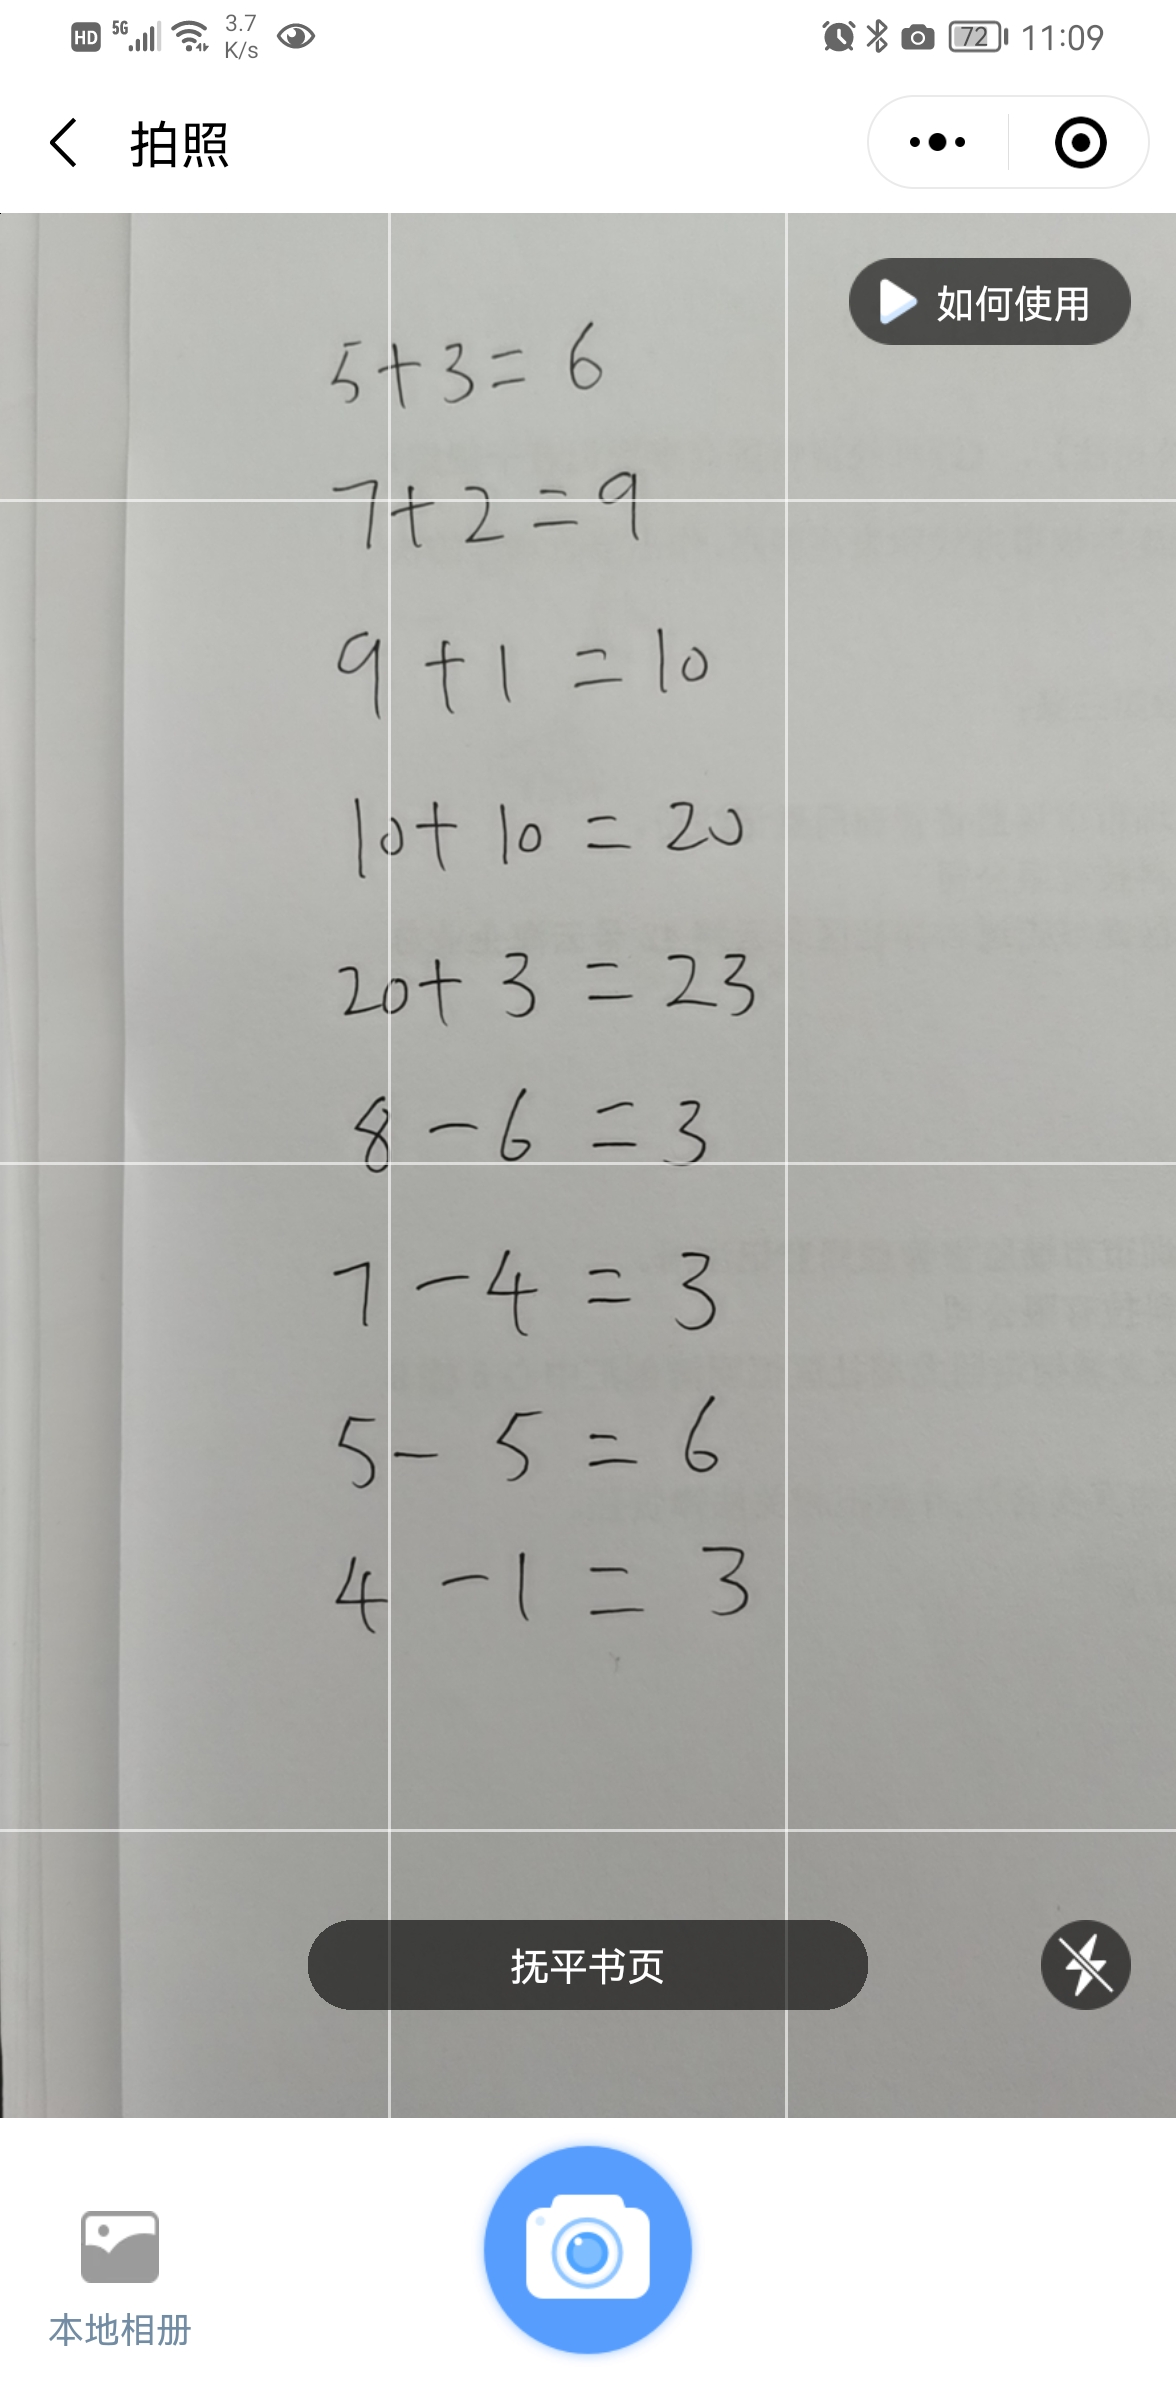 HD 5G 3.7 K/s 72 11:09
拍照
如何使用
5+3=6
7+2=9
9+1=10
10+10=20
20+3=23
8-6=3
7-4=3
5-5=6
4-1=3
抚平书页
本地相册